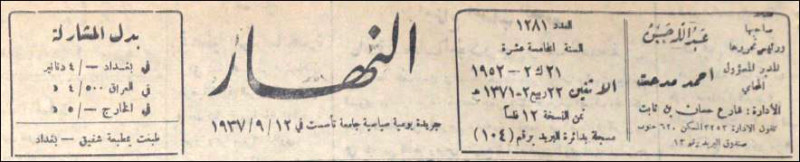 صاحبها
ورئيس تحريرها
عبد الله حسين
المدير المسؤول
المحامي
احمد مدحت
الادارة: شارع حسان بن ثابت
تلفون الادارة ٢٢٥٣ السكن
صندوق البريد رقم ١٢
العدد ١٢٨١
السنة الخامسة عشرة
الاثنين
٢١ ك٢ - ١٩٥٢
٢٣ ربيع٢ - ١٣٧١ هـ
ثمن النسخة ١٢ فلساً
مسجلة بدائرة البريد برقم (١٠٤)
النهار
جريدة يومية سياسية جامعة تأسست في ١٢/٩/١٩٣٧
بدل المشاركة
في بغداد -/٤ دنانير
في العراق ٤/٥٠٠ د
في الخارج -/٥ د
طبعت بمطبعة شفيق - بغداد